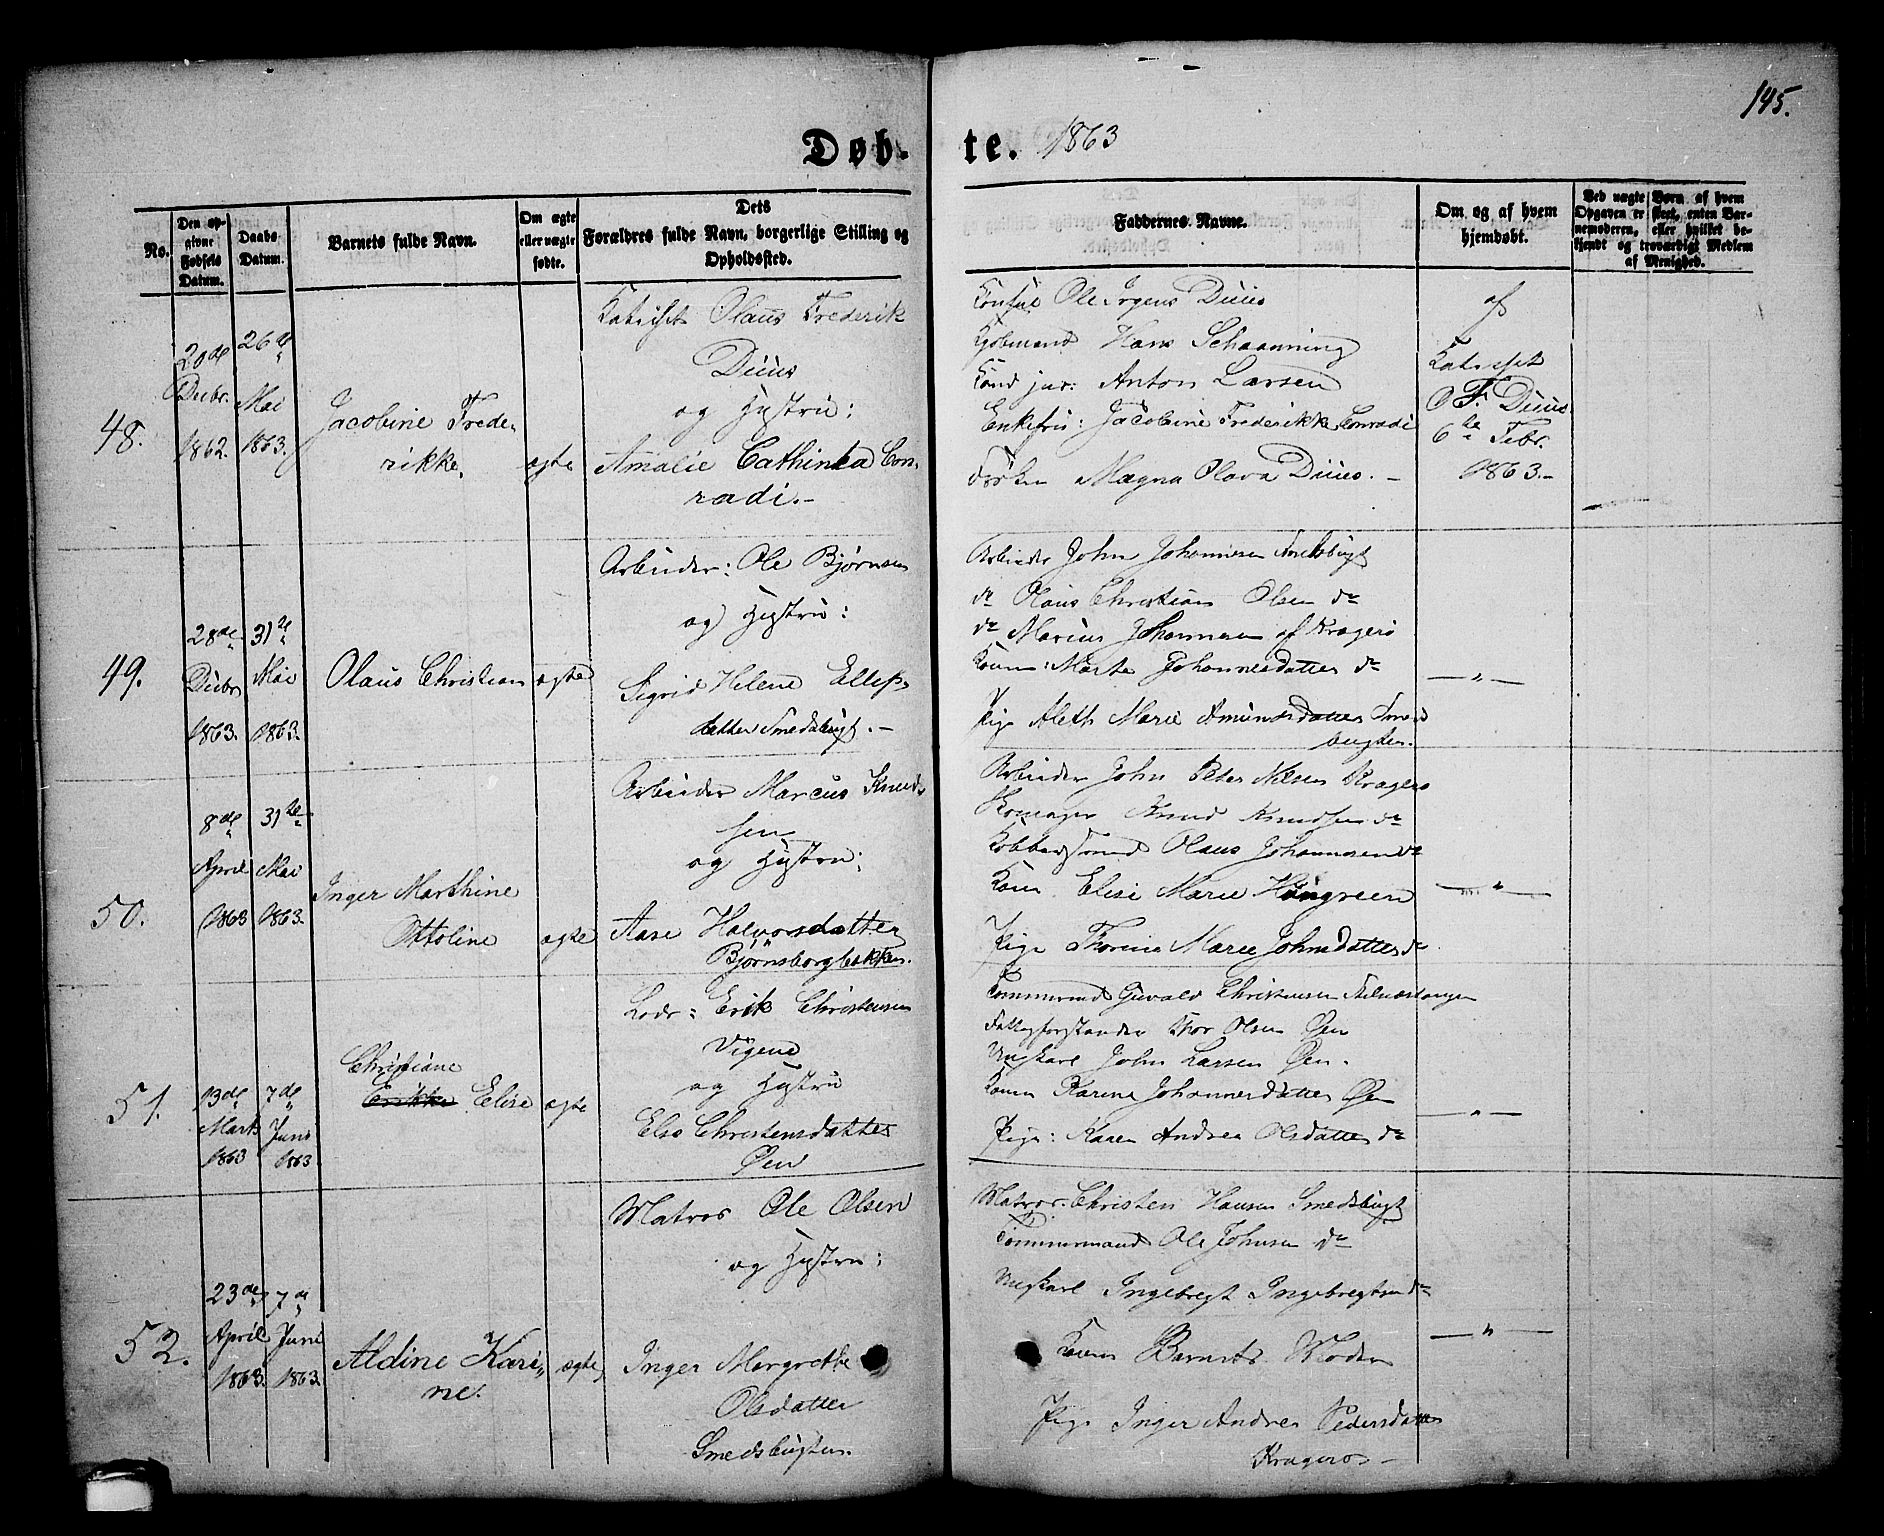 145.
Døb-
te. 1863
No.
Den op-
givne
Fødsels
Datum.
Daabs
Datum.
Barnets fulde Navn.
Om ægte
eller uægte
fødte.
Dets
Forældres fulde Navn, borgerlige Stilling og
Opholdssted.
Faddernes Navne.
Om og af hvem
hjemdøbt.
Ved uægte Børn af hvem
Opgaven er skeet, enten Bar-
nemoderen, eller hvilket be-
kjendt og troværdigt Medlem
af Menighed.
48.
20de
Decbr.
1862.
26de
Mai
1863.
Jacobine Frede-
rikke.
ægte
Olaus Frederik
Duus
og Hustru:
Amalie Cathinka Con-
radi.-
Consul Ole Irgens Duus
Kjøbmand Hans Schanning
Cand jur: Anton Larsen
Enkefru: Jacobine Frederikke Conradi
Frøken Magna Olava Duus. -
af
O F. Duus
6te Febr.
1863.-
49.
28de
Decbr
1863.
31te
Mai
1863.
Olaus Christian
ægte
Arbeider: Ole Bjørnsen
og Hustru:
Sigrid Helene Ellefs-
datter Smedsbugt.-
Arbeider John Johannesen Smedsbugt
do Olaus Christian Olsen do
do Marius Johannesen af Kragerø
Kone: Marte Johannesdatter do
Pige Aleth Marie Amundsdatter Smeds
bugten.
— " —
50.
8de
April
1863
31te
Mai
1863.
Inger Marthine
Ottoline
ægte
Arbeider Marcus Knud-
sen
og Hustru:
Aase Halvorsdatter
Bjørnsborgbakken.
Arbeider John Peter Nilsen Kragerø
Skomager Knud Knudsen do
Olaus Johannesen do
Kone Elise Marie
Pige Thorine Marie Johnsdatter do
— " —
51.
13de
Marts
1863
7de
Juni
1863
Christiane
Erikke Elise
ægte
Lods: Erik Christensen
Vigene
og Hustru
Else Christensdatter
Øen
Tømmermand Gevald Christensen
Fattigforstander Thor Olsen Øen
Ungkarl John Larsen Øen.
Kone Karine Johannesdatter Øen
Pige: Karen Andrea Olsdatter do
— " —
52.
23de
April
1863.
7de
Juni
1863.
Aldine Kari-
ne.
ægte
Matros Ole Olsen
og Hustru:
Inger Margrethe
Olsdatter
Smedsbugten.
Matros Christen Hansen Smedsbugt
Tømmermand Ole Johnsen do
Ungkarl Ingebregt Ingebregtsen do
Kone Barnets Moder
Pige Inger Andrea Pedersdatter
Kragerø -
— " —